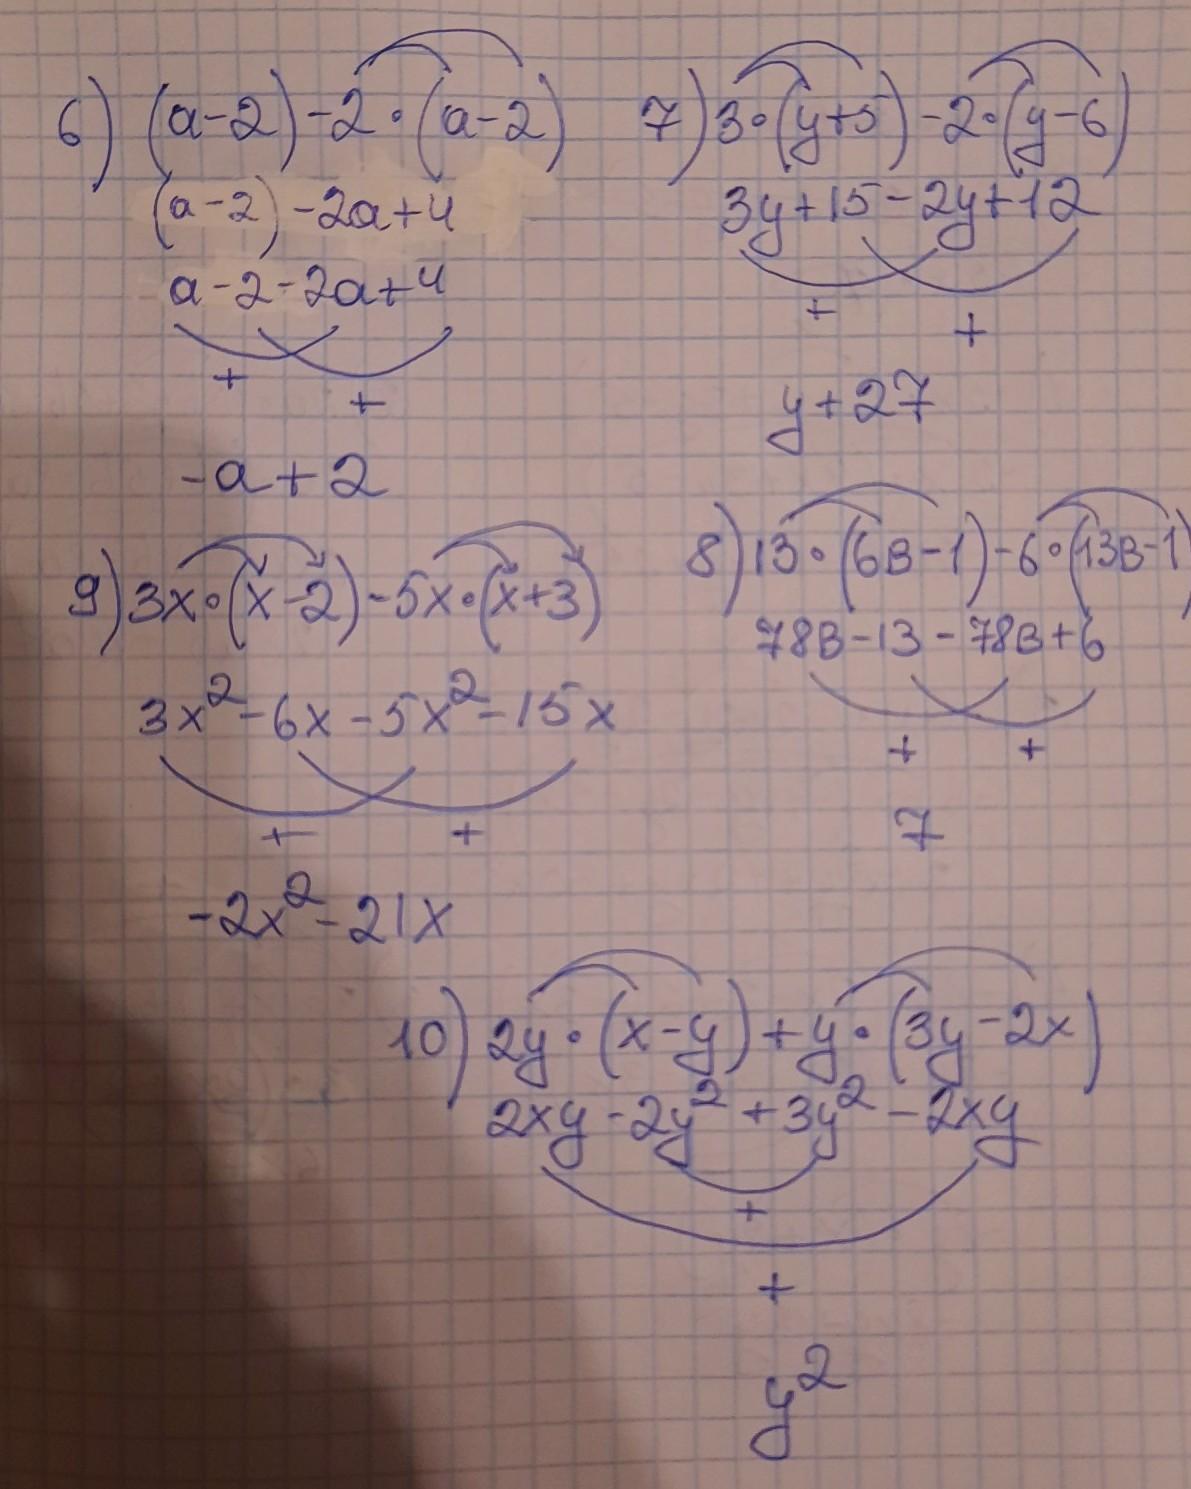 6) (a-2)-2·(a-2)
(a-2)-2a+4
a-2-2a+4
+ +
-a+2
7) 3·(y+5)-2·(y-6)
3y+15-2y+12
+ +
y+27
9) 3x·(x-2)-5x·(x+3)
3x²-6x-5x²-15x
+ +
-2x²-21x
8) 13·(6в-1)-6·(13в-1)
78в-13-78в+6
+ +
7
10) 2y·(x-y)+y·(3y-2x)
2xy-2y²+3y²-2xy
+
+
y²